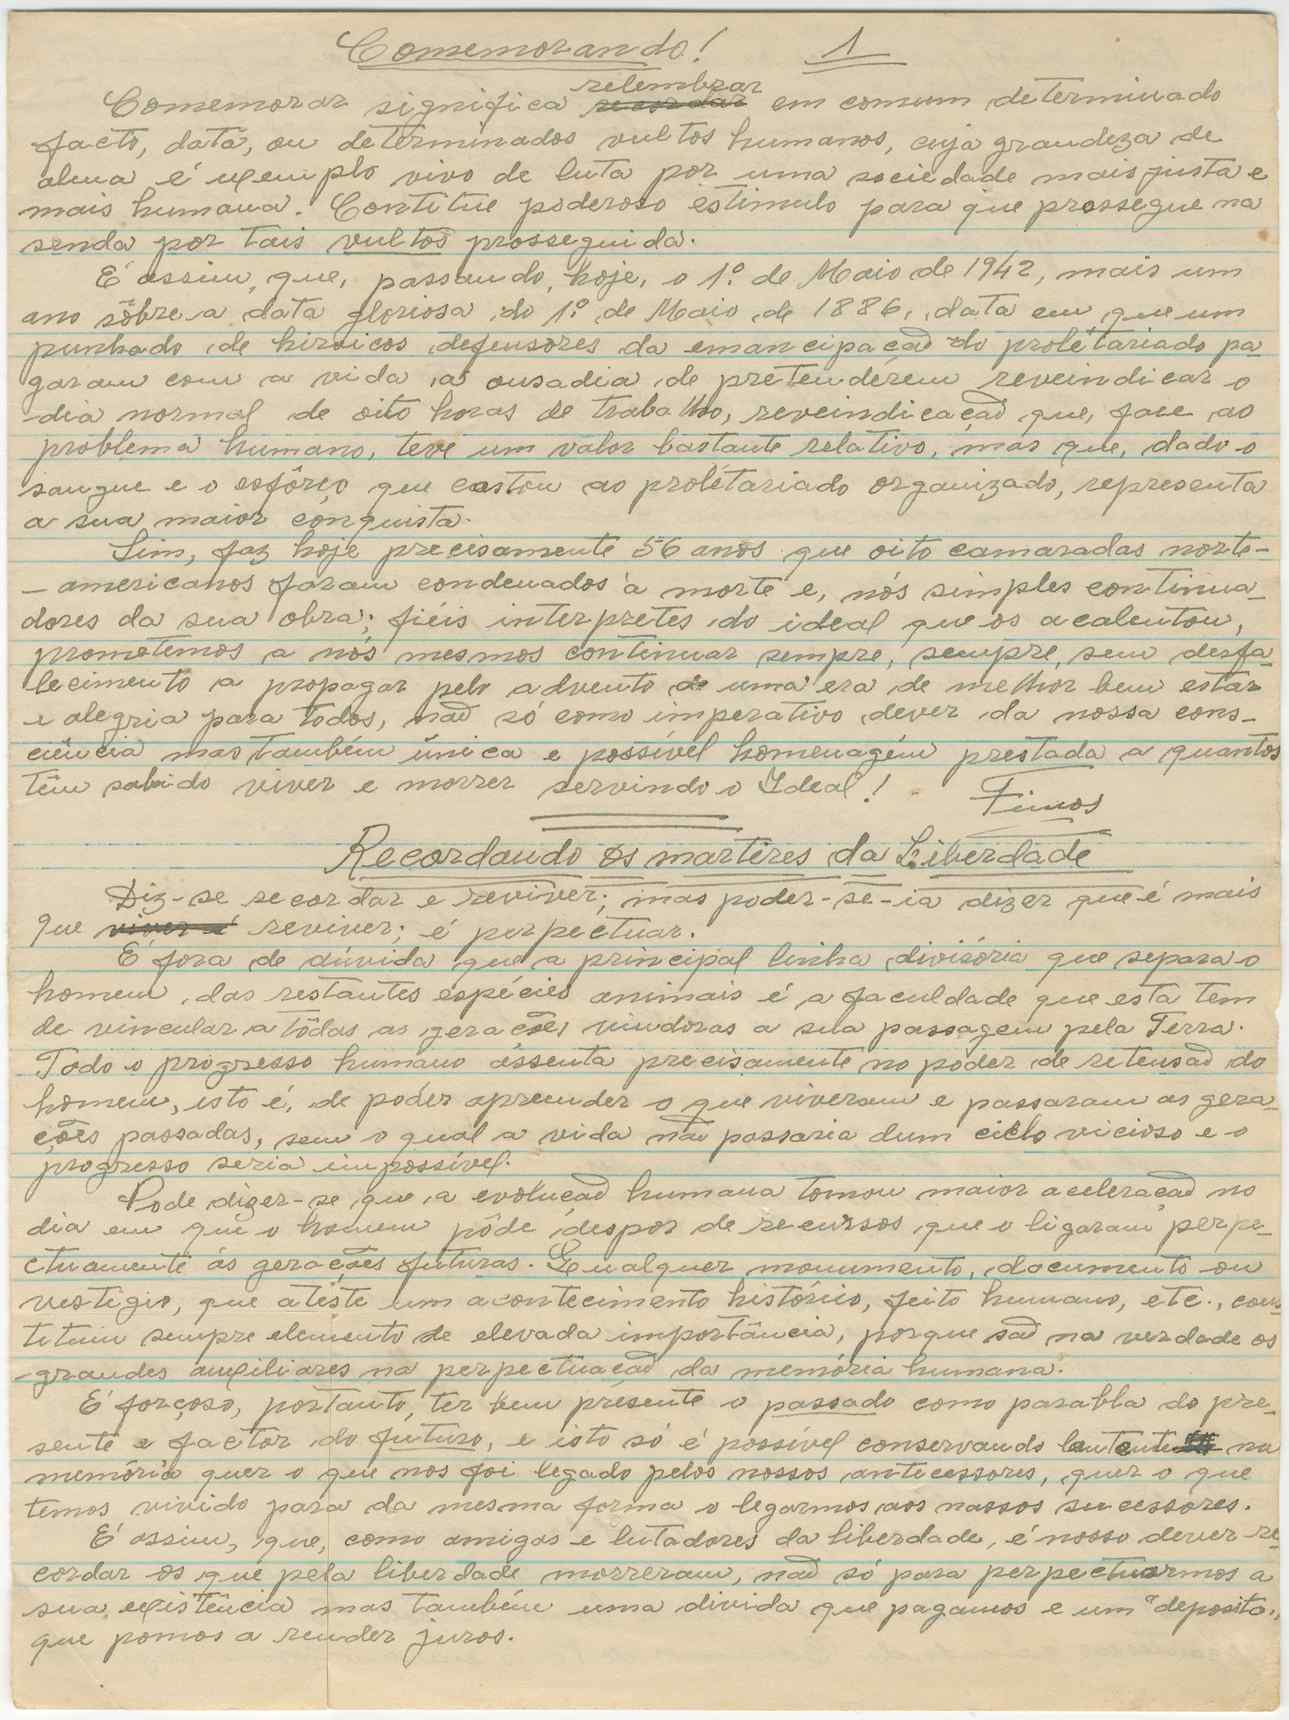 Comemorando! 1
relembrar
Comemorar significa recordar em comum determinado
facto, data, ou determinados vultos humanos, cuja grandeza de
alma é exemplo vivo de luta por uma sociedade mais justa e
mais humana. Contitue poderoso estimulo para que prossegue na
senda por tais vultos prosseguida.
É assim, que, passando, hoje, o 1º. de Maio de 1942, mais um
ano sôbre a data gloriosa do 1º. de Maio de 1886, data em que um
punhado de hiroicos defensores da emancipação do prolétariado pa-
garam com a vida a ousadia de pretenderem reveindicar o
dia normal de oito horas de trabalho, reveindicação que, face ao
problema humano, teve um valor bastante relativo, mas que, dado o
sangue e o esfôrço que custou ao prolétariado organizado, representa
a sua maior conquista.
Sim, faz hoje precisamente 56 anos que oito camaradas norte-
-americanos foram condenados à morte e, nós simples continua-
dores da sua obra; fiéis interpretes do ideal que os acalentou,
prometemos a nós mesmos continuar sempre, sempre, sem desfa-
lecimento a propagar pelo advento de uma era de melhor bem estar
e alegria para todos, não só como imperativo dever da nossa cons-
ciência mas também única e possível homenagém prestada a quantos
têm sabido viver e morrer servindo o Ideal!
Recordando os martires da Liberdade
Diz-se recordar e reviver; mas poder-se-ia dizer que é mais
que viver é reviver; é perpéctuar.
É fora de dúvida que a principal linha divisória que separa o
homem das restantes espécies animais é a faculdade que esta tem
de vincular a tôdas as gerações vindoras a sua passagem pela Terra.
Todo o progresso humano assenta precisamente no poder de retensão do
homem, isto é, de poder apreender o que viveram e passaram as gera-
ções passadas, sem o qual a vida não passaria dum ciclo vicioso e o
progresso seria impossível.
Pode dizer-se que a evolução humana tomou maior aceleração no
dia em que o homem pôde despor de recursos que o ligaram perpe-
ctuamente ás gerações futuras. Qualquer monumento, documento ou
vestigio, que ateste um acontecimento histórico, feito humano, etc., cons-
tituiu sempre elemento de elevada importância, porque são na verdade os
grandes auxiliares na perpectuação da memória humana.
É forçoso, portanto, ter bem presente o passado como parabla do pre-
sente e factor do futuro, e isto só é possível conservando latente na
memória quer o que nos foi legado pelos nossos antecessores, quer o que
temos vivido para da mesma forma o legarmos aos nossos sucessores.
É assim, que, como amigos e lutadores da liberdade, é nosso dever re-
cordar os que pela liberdade morreram, não só para perpectuarmos a
sua existência mas também uma divida que pagamos e um "deposito"
que pomos a render juros.